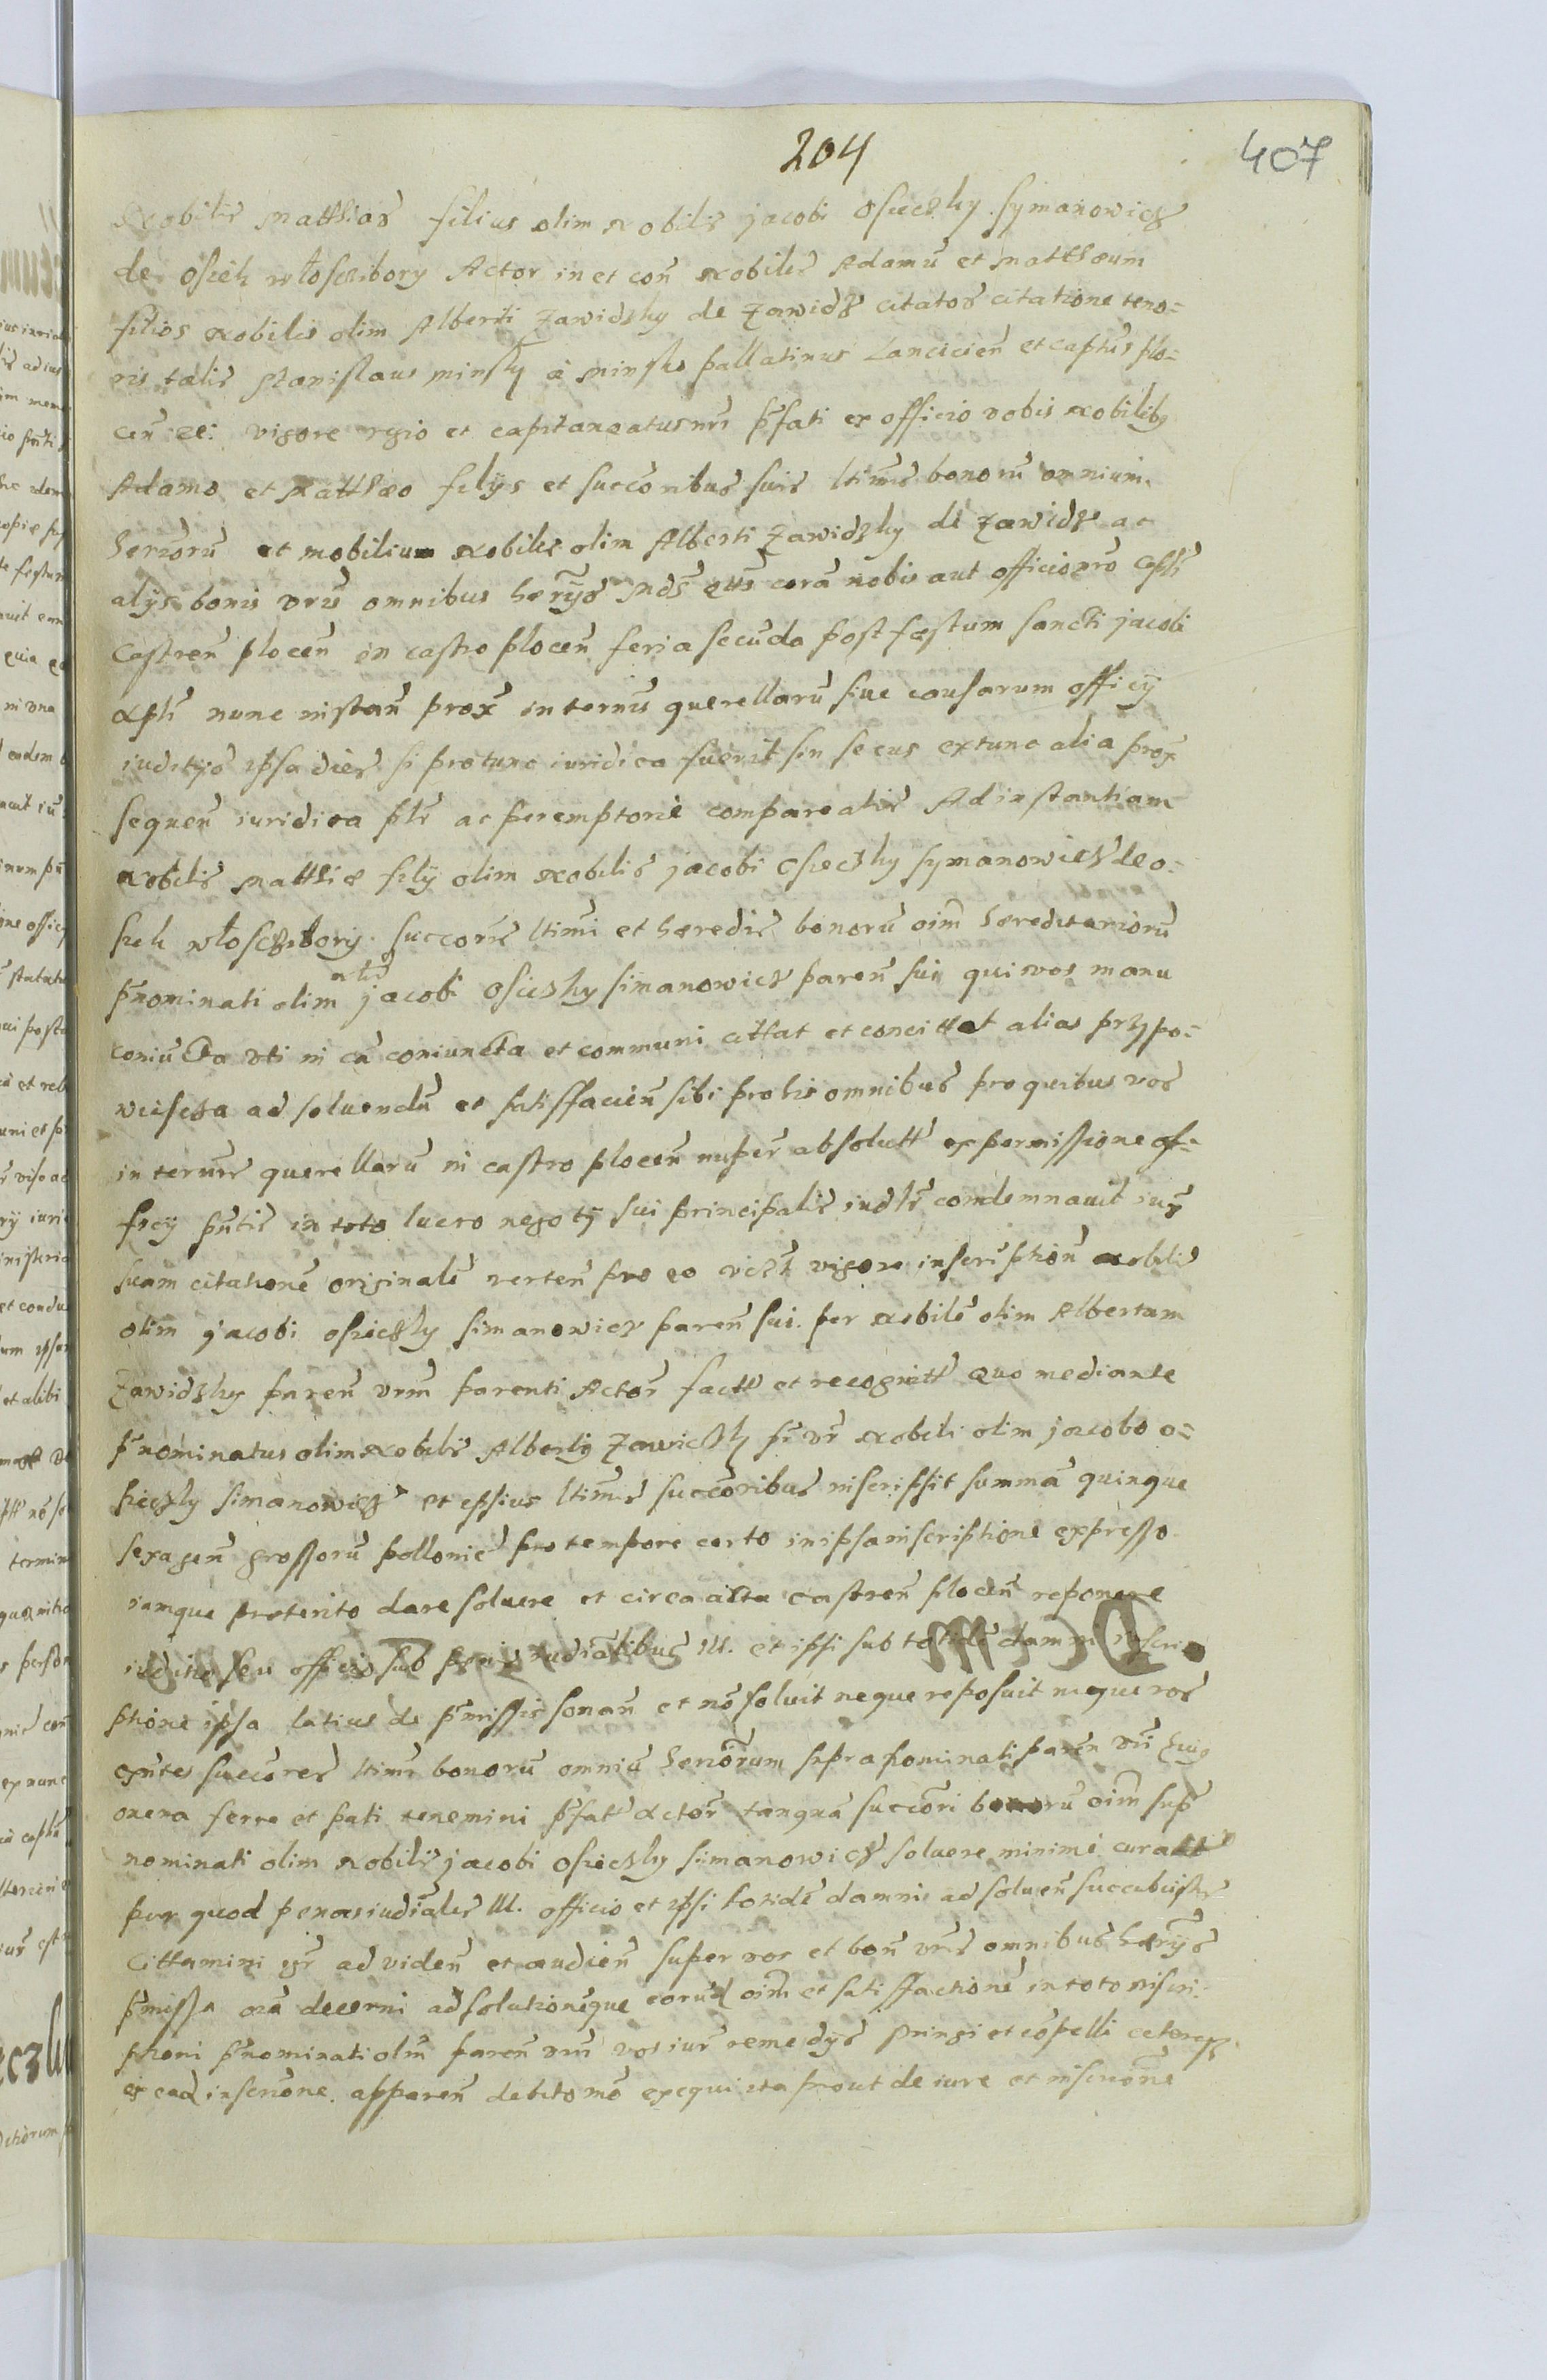 204
407
Nobilis Matthias filius olim Nobilis Jacobi Osieczky Symanowicz
de Osiek Włosczibory Actor in et con̄ Nobiles Adamū et Matthæum
filios Nobilis olim Alberti Zawidzky de Zawidz citatos citatione teno=
ris talis Stanislaus Minsky à Minsko pallatinus Lancicien̄ et capt̄s plo=
cen̄ etc: vigore regio et capitaneatus nr̄i p̄fati ex officio vobis Nobilibꝫ
Adamo et Matthæo filijs et succ̄oribus suis ltim̄is bonorū omnium
her̄iorū et mobilium Nobilis olim Alberti Zawidzky de Zawidz ac
alijs bonis vr̄is omnibus hær̄ijs Mds̄ qtt̄s corā nobis aut officio nr̄o Capli
Castren̄ plocen̄ in castro plocen̄ feria secūda post fæstum sancti Jacobi
Apli nunc instan̄ prox̄ in termīs querellarū siue causarum officij
iuditijs ipsa dies si pro tunc iuridica fuerit sin secus extunc alia prox̄
sequen̄ iuridica plr̄ ac peremptorie compareatis Ad instantiam
Nobilis Matthiæ filij olim Nobilis Jacobi Osieczky Symanowicz de O=
siek Włosczibory succ̄oris ltimi et hæredis bonorū oim̄ hæreditariorū
p̄nominati olim nb̄lis Jacobi Osieczky Simanowicz paren̄ sui qui vos manu
coniūcta vti in cā coniuncta et communi cittat et concittat alias przypo=
wiescza ad soluendū et satisfacien̄ sibi pro his omnibus pro quibus vos
in termīs querellarū in castro plocen̄ nuper absolutt̄ ex permissione of=
ficij p̄ntis in toto lucro negotij sui principalis iudlr̄ condemnauit iux̄
suam citationē originalē verten̄ pro eo viczt vigore inscriptiōn Nobilis
olim Jacobi Osieczky Simanowicz paren̄ sui per Nobilē olim Albertum
Zawidzky paren̄ vr̄m parenti Actor̄ factt̄ et recognitt̄ Quo mediante
p̄nominatus olim Nobilis Albertꝫ Zawidzky Nobili olim Jacobo O=
sieczky Simanowicz et ipsius ltim̄is succ̄oribus inscripsit summā quinque
sexagen̄ grossorū pollonic̄ pro tempore certo in ipsa inscriptione expresso
iamque præterito dare soluere et circa acta castren̄ plocen̄ reponere
iuditio seu officio sub pœnis iudiālibus III. et ipsi sub totidē damni inscri=
ptione ipsa latius de p̄missis sonan̄ et nō soluit neque reposuit neque vos
succ̄ores ltim̄i bonorū omniū heriōrum supra nominati paren̄ vr̄i
onera ferre et pati tenemini p̄fatt̄ Actor̄ tanquā succ̄ori bonorū oim̄ sup̄
nominati olim Nobilis Jacobi Osieczky Simanowicz soluere minime curatt̄
per quod pœnas iudiāles III. officio et ipsi totidē damnis ad soluen̄ succubuistis
Cittamini igr̄ ad viden̄ et audien̄ super vos et bon̄ vr̄is omnibus hær̄ijs
p̄missa oīa decerni ad solutionēque eorūd oim̄ et satisfactionē in toto inscri=
ptioni p̄nominati olim paren̄ vr̄m vos iur̄ remedijs stringi et cōpelli
ex ead inscriōne apparen̄ debito mō exequi ita prout de iure et inscriōne